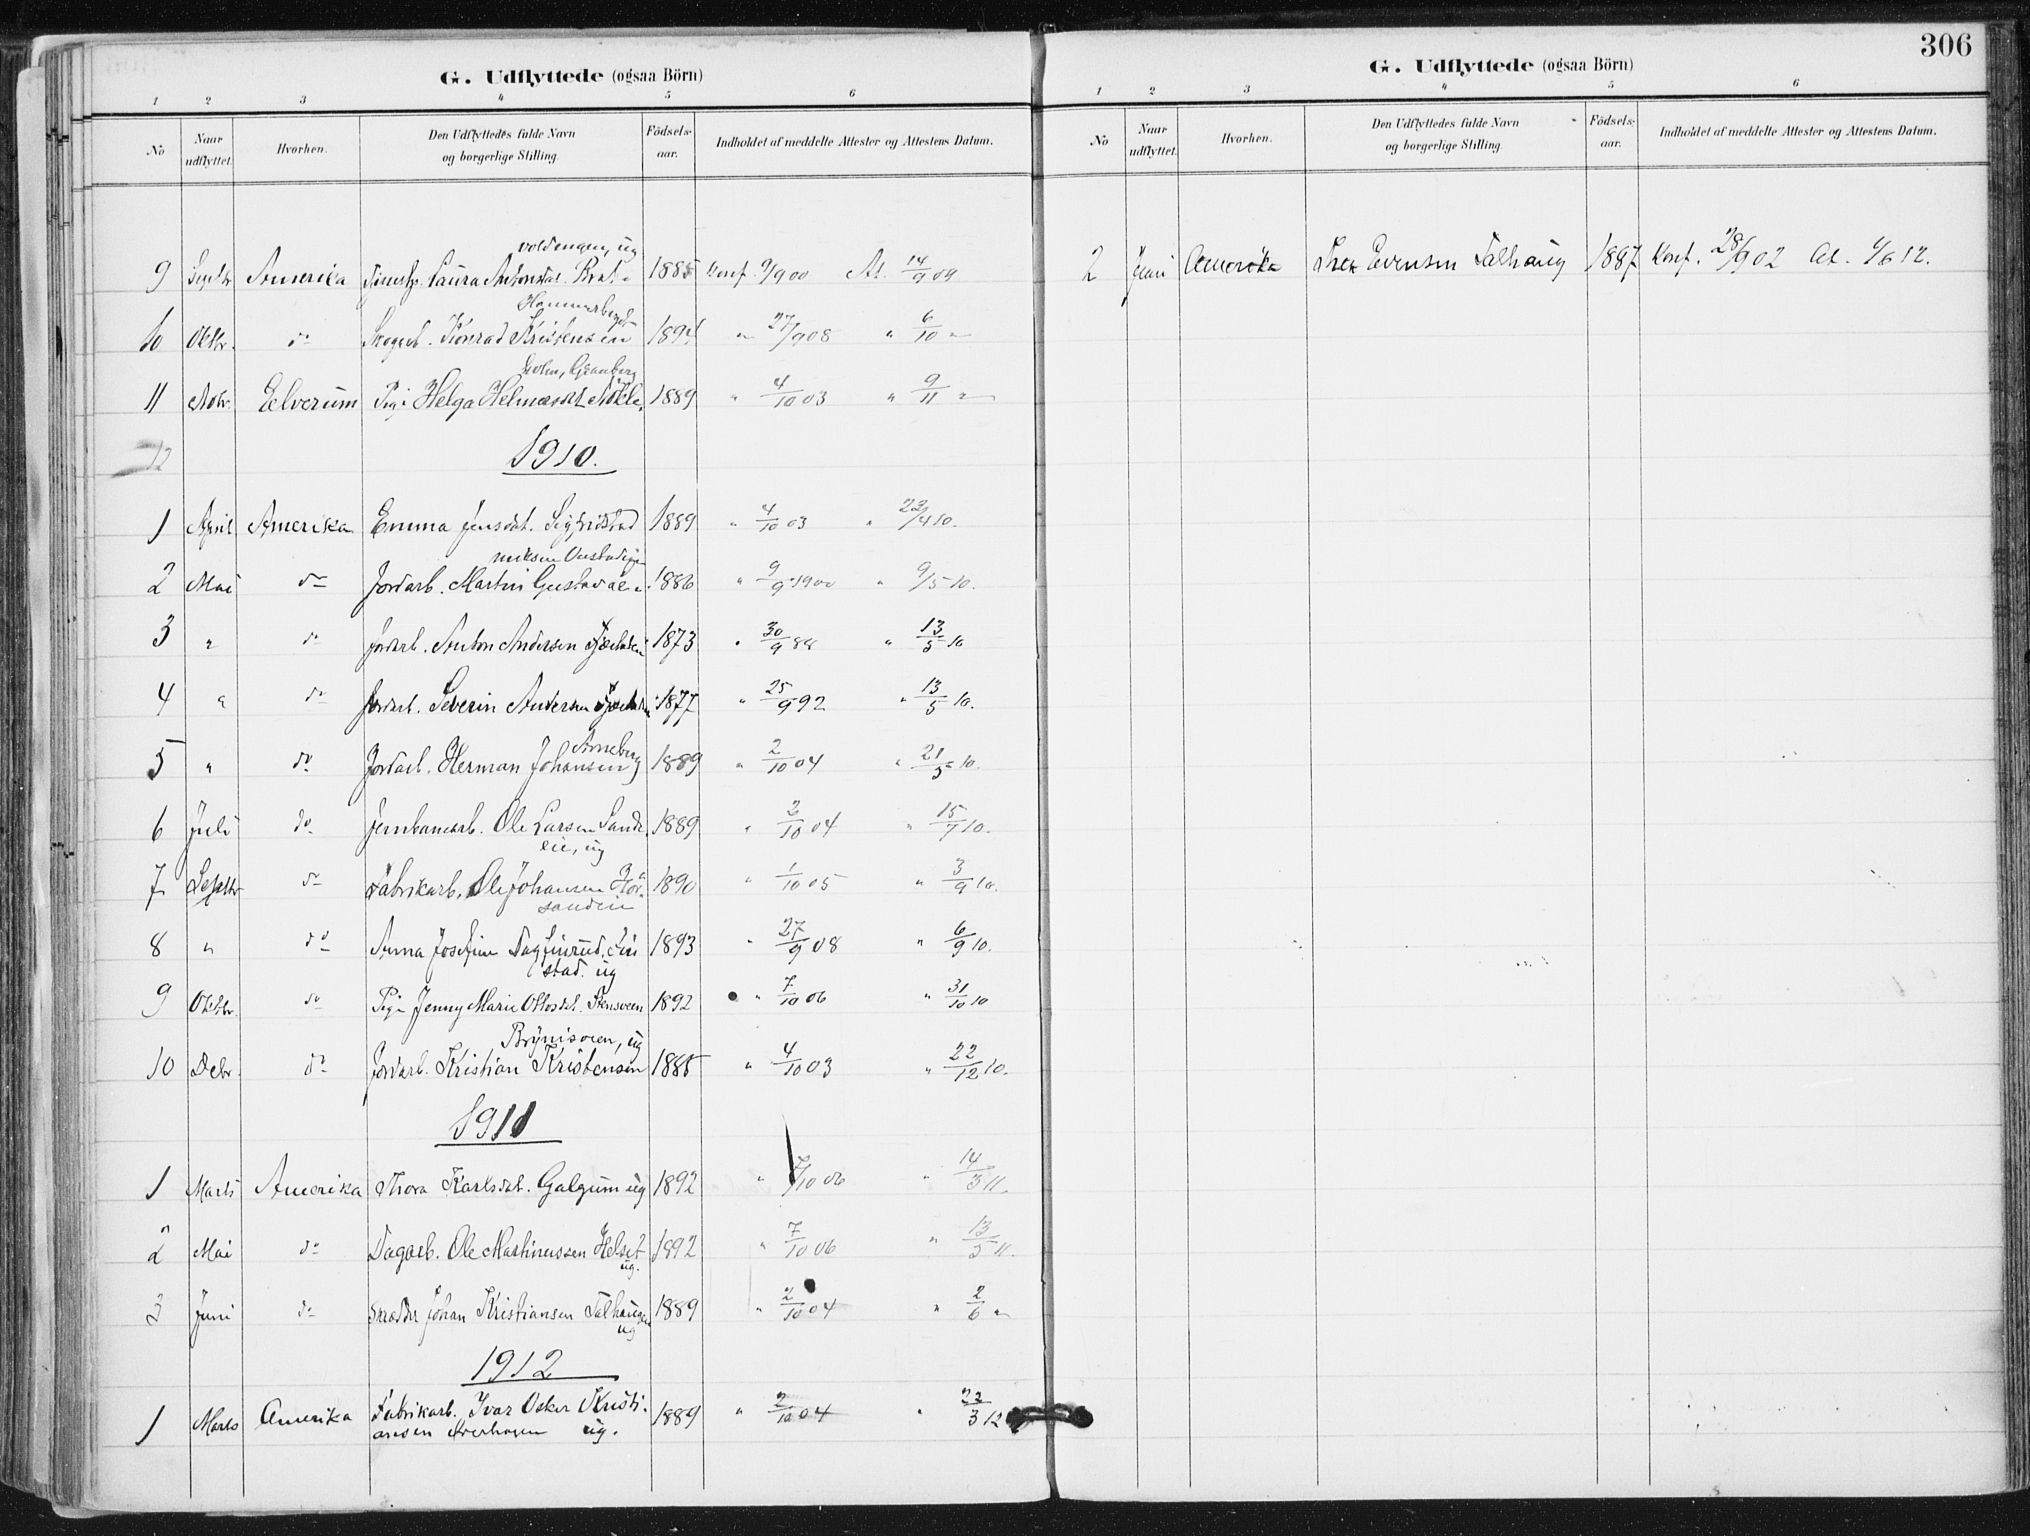 306
G. Udflyttede (ogsaa Börn)
1 2 3 4 5 6
No
Naar udflyttet.
Hvorhen.
Den Udflyttedes fulde Navn og borgerlige Stilling.
Födsels-aar.
Indholdet af meddelte Attester og Attestens Datum.
voldengen, ug
9 Septbr Amerika Laura Antonsdat. Brat- 1885 Konf. 9/9 00 At. 14/9 09
10 Oktbr. do Skogarb. Konrad Kristensen 1894 " 27/9 08 " 6/10 "
11 Novbr. Elverum Pige Helga 1889 " 4/10 03 " 9/11 "
12
1910.
1 April Amerika Emma Jensdat. 1889 " 4/10 03 " 22/4 10.
2 Mai do Jordarb. Martin 1886 " 9/9 1900 " 9/5 10.
3 " do Jordarb. Anton Andersen 1873 " 30/9 88 " 13/5 10
4 " do Jordarb. Severin Andersen 1877 " 25/9 92 " 13/5 10.
Arneberg
5 " do Jordarb. Herman Johansen 1889 " 2/10 04 " 21/5 10.
6 Juli do Jernbanearb. Ole Larsen Sande- 1889 " 2/10 04 " 15/7 10.
lie, ug
7 Septbr do Fabrikarb. Ole Johansen 1890 " 1/10 05 " 3/9 10.
sandin
8 " do Anna Josefine 1893 " 27/9 08 " 6/9 10.
stad. ug
9 Oktbr. do Pige Jenny Marie Ottosdat. Stensveen 1892 " 7/10 06 " 31/10 10
Brynisveen, ug
10 Debr. do Jordarb. Kristian Kristensen 1885 " 4/10 03 " 22/12 10.
1911
1 Marts Amerika Thora Karlsdat. Galgum ug 1892 " 7/10 06 " 14/3 11.
2 Mai do Dagarb. Ole Martinussen Helset 1892 " 7/10 06 " 13/5 11.
ug.
3 Juni do Skrædder Johan Kristiansen 1889 " 2/10 04 " 2/6 "
ug
1912
1 Marts Amerika Fabrikarb. Ivar Oskar Kristi- 1889 " 2/10 04 " 22/3 12
ansen ug.
G. Udflyttede (ogsaa Börn)
1 2 3 4 5 6
No
Naar udflyttet.
Hvorhen.
Den Udflyttedes fulde Navn og borgerlige Stilling.
Födsels-aar.
Indholdet af meddelte Attester og Attestens Datum.
2 Juni Amerika Thea Evensen Talhaug 1887 Konf. 28/9 02 At. 1/6 12.